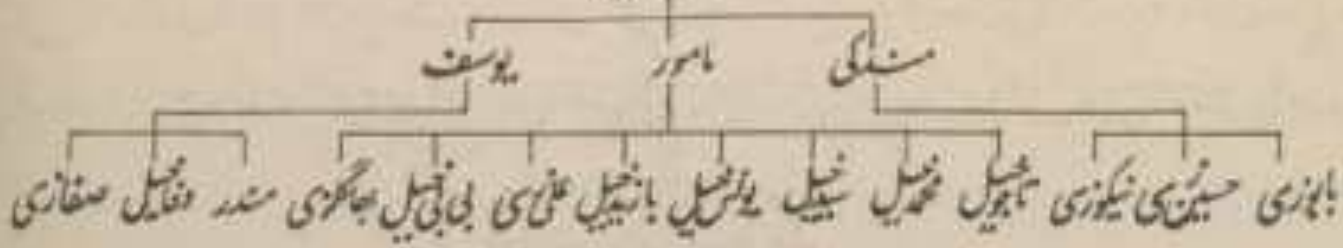 مندکی مامور یوسف
بایوزی حسین زی نیکوزی تاجوخیل محمدخیل سیدخیل یونس خیل بازیدخیل علی سی بی بی خیل بھاگوزی مندر وفاخیل صفازی